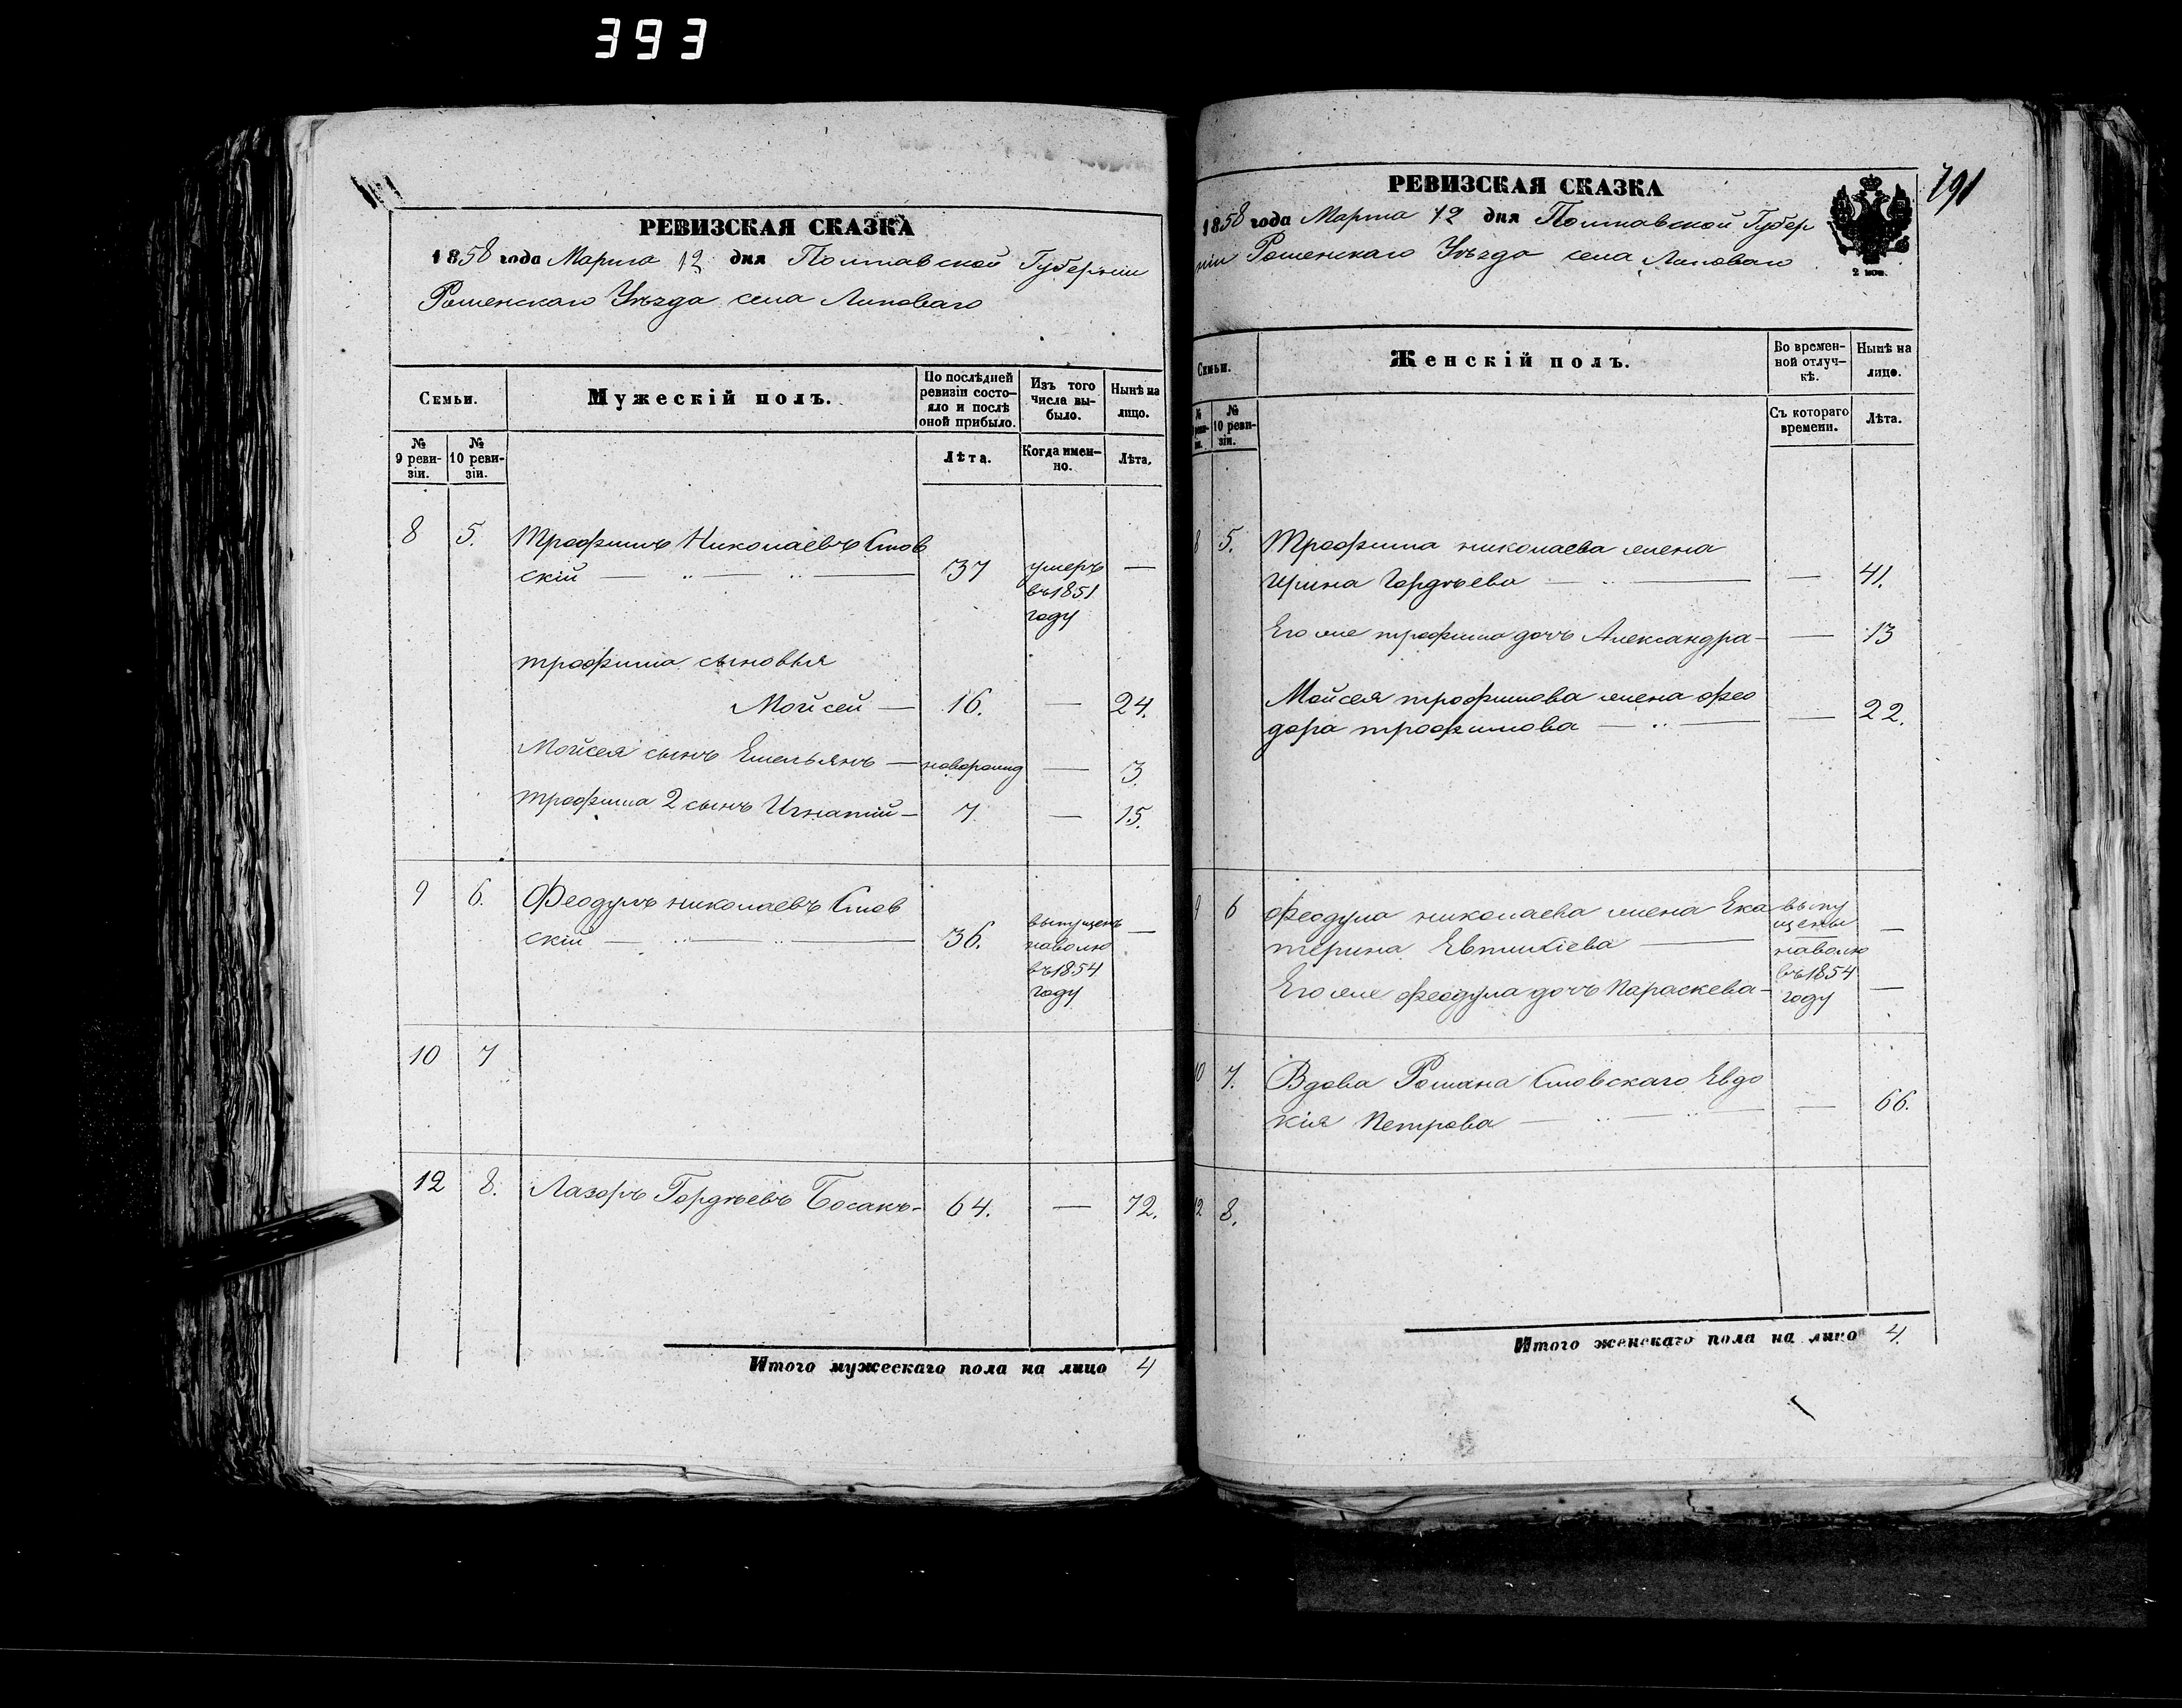 393
РЕВИЗСКАЯ СКАЗКА
1858 года Марта 12 дня Полтавской Губерніи
Роменскаго Уѣзда села Липоваго
Семьи.
Мужескій полъ.
По послѣдней ревизіи состояло и послѣ оной прибыло.
Изъ того числа выбыло.
Нынѣ на лицо.
№ 9 ревизіи.
№ 10 ревизіи.
Лѣта.
Когда именно.
Лѣта.
8 5. Трофимъ Николаевъ
скій — 37 умеръ —
въ 1851
году
трофима сыновья
Мойсей — 16. — 24.
Мойсея сынъ Емельянъ — коворожд — 3.
трофима 2 сынъ Игнатій — 7 — 15.
9 6. Феодулъ николаевъ
скій — 36. выпущенъ —
наволю
въ 1854
году
10 7
12 8. Лазоръ Гордѣевъ Босакъ — 64. — 72.
Итого мужескаго пола на лицо 4
191
РЕВИЗСКАЯ СКАЗКА
1858 года Марта 12 дня Полтавской Губер
ніи Роменскаго Уѣзда села Липоваго
2 коп.
Семьи.
Женскій полъ.
Во временной отлучкѣ.
Нынѣ на лицо.
№ 10 ревизіи.
Съ котораго времени.
Лѣта.
8 5. Трофима николаева жена
Ирина Гордѣева — — 41.
Его же трофима дочь Александра — — 13
Мойсея трофимова жена фео
дора трофимова — — 22.
9 6 Феодула николаева жена Ека выпу
терина Евтихіева — щены —
наволю
въ 1854
Его же феодула дочь Параскева — году —
10 7. Вдова Романа Евдо
кія Петрова — — 66.
12 8.
Итого женскаго пола на лицо 4.